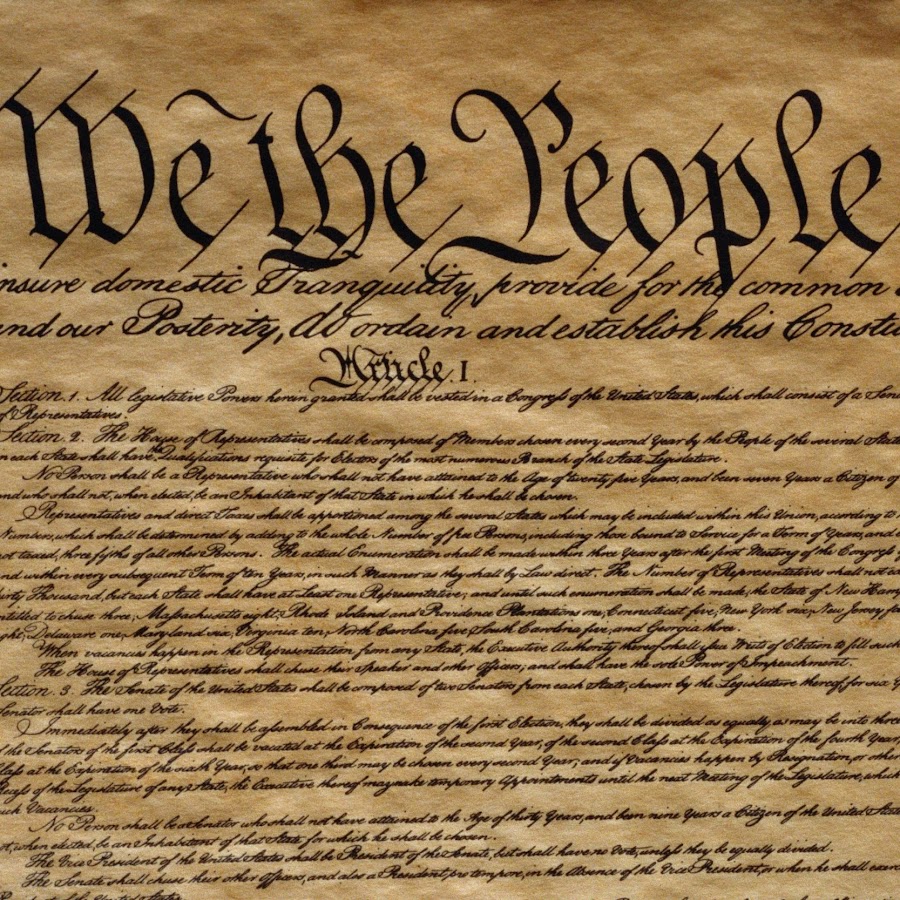 We the People
insure domestic Tranquility, provide for the common
and our Posterity, do ordain and establish this Constitu
Article. I.
Section. 1. All legislative Powers herein granted shall be vested in a Congress of the United States, which shall consist of a Sena
of Representatives.
Section. 2. The House of Representatives shall be composed of Members chosen every second Year by the People of the several State
in each State shall have the Qualifications requisite for Electors of the most numerous Branch of the State Legislature.
No Person shall be a Representative who shall not have attained to the Age of twenty five Years, and been seven Years a Citizen of
and who shall not, when elected, be an Inhabitant of that State in which he shall be chosen.
Representatives and direct Taxes shall be apportioned among the several States which may be included within this Union, according to
Numbers, which shall be determined by adding to the whole Number of free Persons, including those bound to Service for a Term of Years, and
not taxed, three fifths of all other Persons. The actual Enumeration shall be made within three Years after the first Meeting of the Congress
and within every subsequent Term of ten Years, in such Manner as they shall by Law direct. The Number of Representatives shall not
thirty Thousand, but each State shall have at Least one Representative; and until such enumeration shall be made, the State of New Hamp
entitled to chuse three, Massachusetts eight, Rhode Island and Providence Plantations one, Connecticut five, New York six, New Jersey
eight, Delaware one, Maryland six, Virginia ten, North Carolina five, South Carolina five, and Georgia three.
When vacancies happen in the Representation from any State, the Executive Authority thereof shall issue Writs of Election to fill such
The House of Representatives shall chuse their Speaker and other Officers; and shall have the sole Power of Impeachment.
Section. 3. The Senate of the United States shall be composed of two Senators from each State, chosen by the Legislature thereof, for six
Senator shall have one Vote.
Immediately after they shall be assembled in Consequence of the first Election, they shall be divided as equally as may be into three
of the Senators of the first Class shall be vacated at the Expiration of the second Year, of the second Class at the Expiration of the fourth Year,
Class at the Expiration of the sixth Year, so that one third may be chosen every second Year; and if Vacancies happen by Resignation, or other
Recess of the Legislature of any State, the Executive thereof may make temporary Appointments until the next Meeting of the Legislature, which
such Vacancies.
No Person shall be a Senator who shall not have attained to the Age of thirty Years, and been nine Years a Citizen of the United State
not, when elected, be an Inhabitant of that State for which he shall be chosen.
The Vice President of the United States shall be President of the Senate, but shall have no Vote, unless they be equally divided.
The Senate shall chuse their other Officers, and also a President pro tempore, in the Absence of the Vice President, or when he shall exer